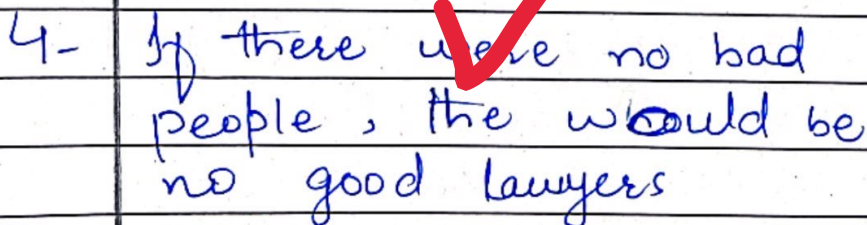 4- If there were no bad
people, the would be
no good lawyers